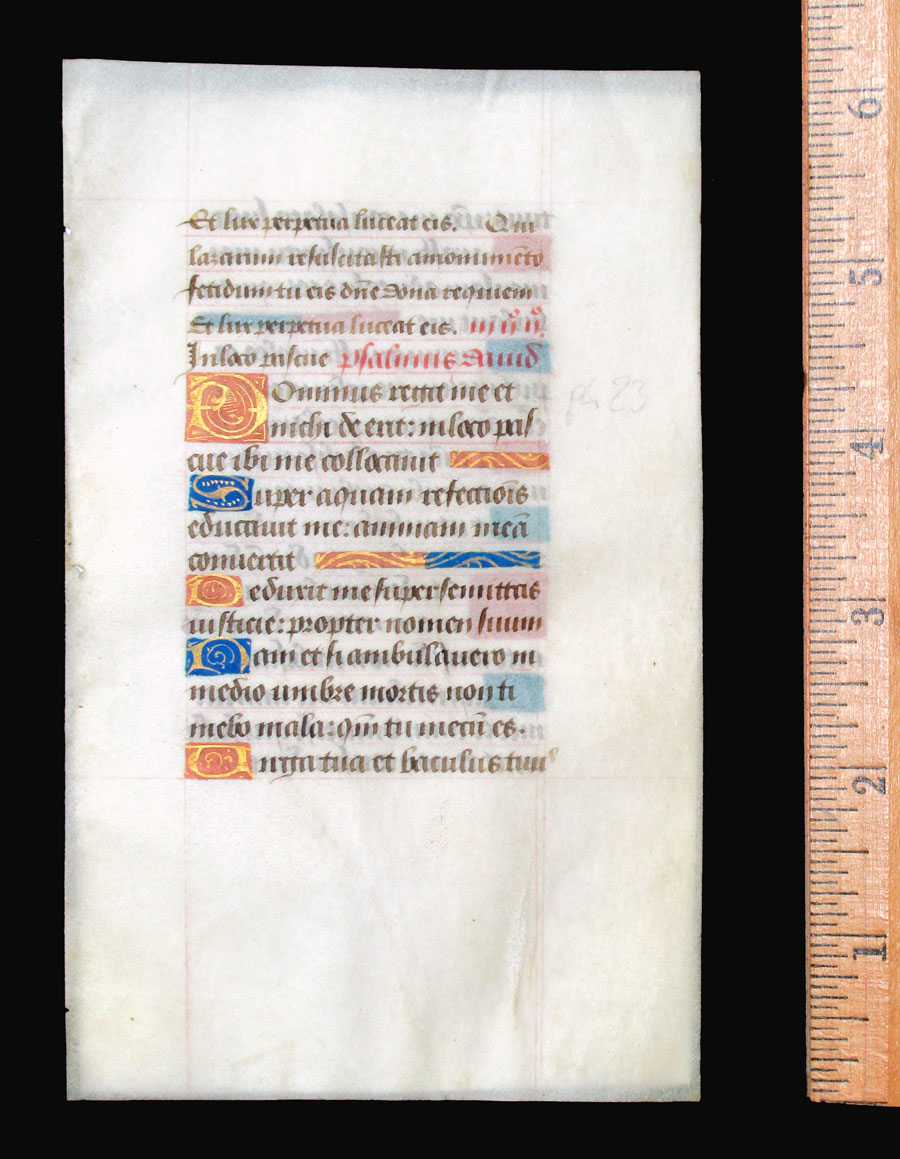 Et lux perpetua luceat eis. Qui
lazarum resuscitasti amonumēto
fetidum tu eis dn̄e dona requiem
Et lux perpetua luceat eis.
Inloco pascue psalmus dauid
Dominus regit me et
nichi de erit: in loco pas
cue ibi me collocauit
Super aquam refectiōis
educauit me: animam meā
conuertit
Deduxit me super semittas
iusticie: propter nomen suum
Nam et si ambulauero in
medio umbre mortis non ti
mebo mala: qm̄ tu mecū es.
Uirga tua et baculus tuus
ps 23
6
5
4
3
2
1